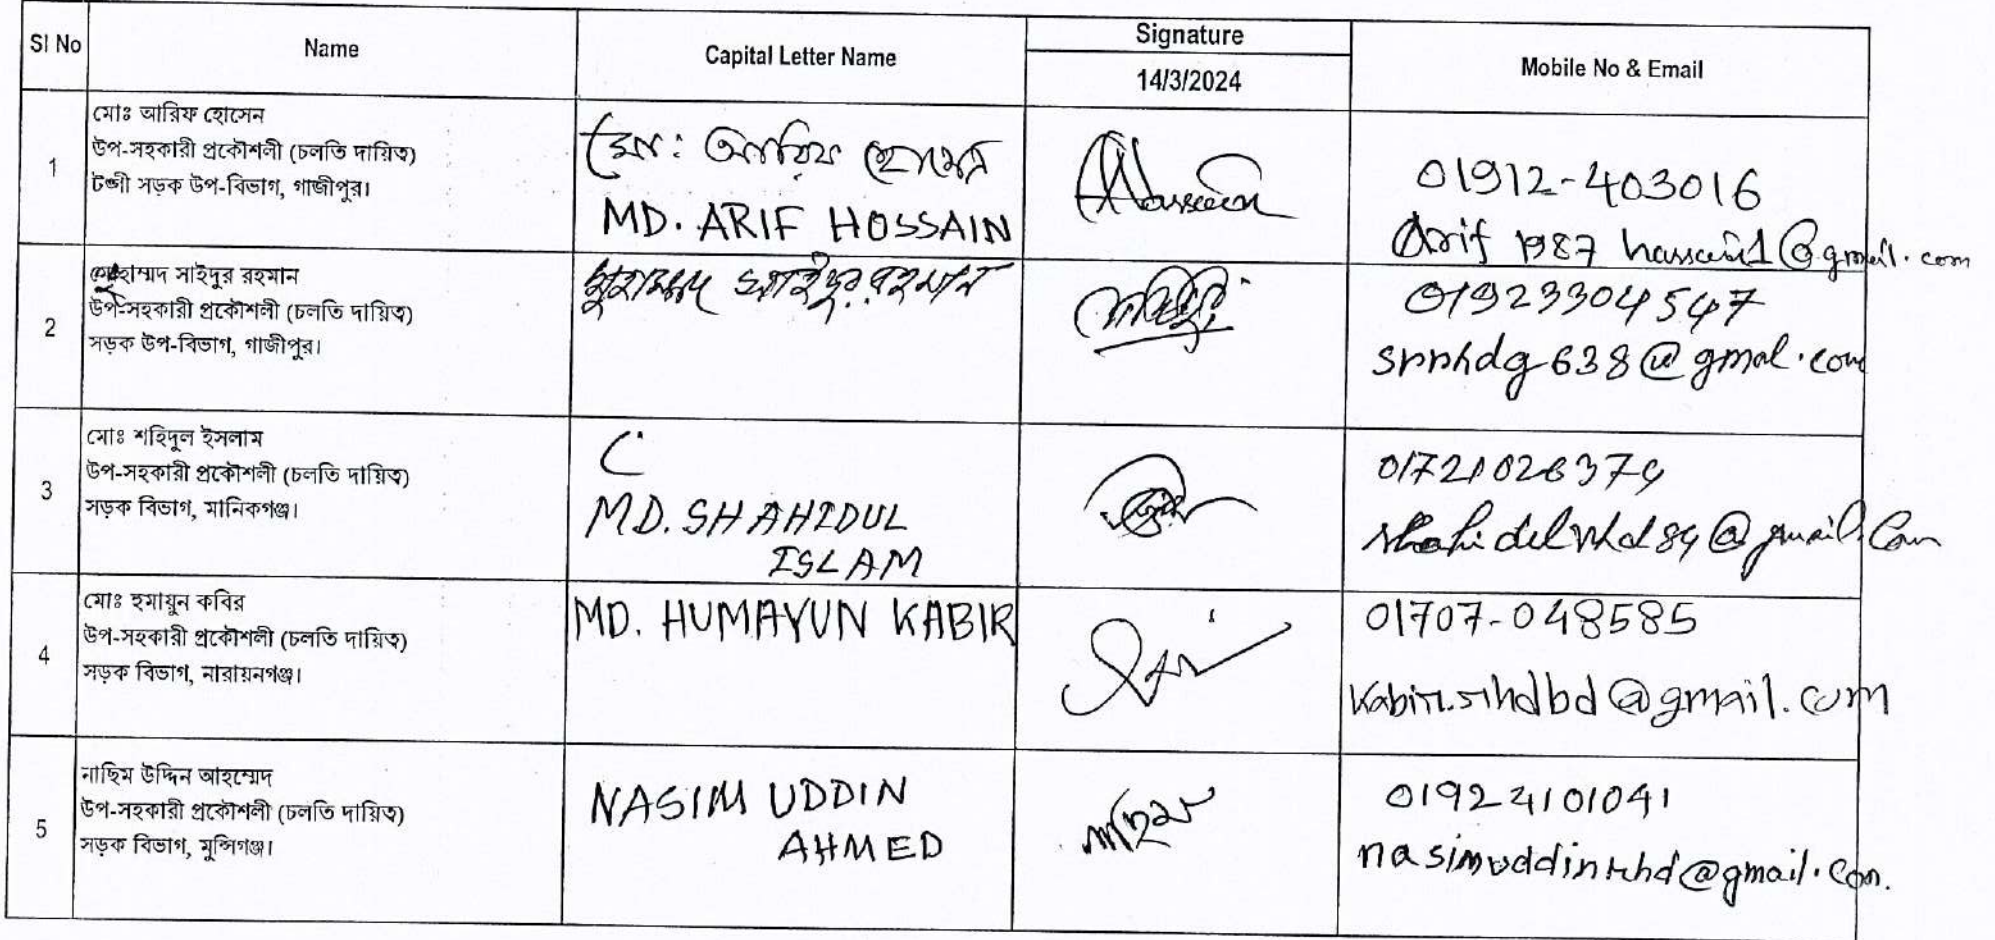 Sl No
Name
Capital Letter Name
Signature
14/3/2024
Mobile No & Email
1
মোঃ আরিফ হোসেন
উপ-সহকারী প্রকৌশলী (চলতি দায়িত্ব)
টঙ্গী সড়ক উপ-বিভাগ, গাজীপুর।
মো: আরিফ হোসেন
MD. ARIF HOSSAIN
01912-403016
2
সাইদুর রহমান
উপ-সহকারী প্রকৌশলী (চলতি দায়িত্ব)
সড়ক উপ-বিভাগ, গাজীপুর।
মুহাম্মদ সাইদুর রহমান
01923304547
@gmal.com
3
মোঃ শহিদুল ইসলাম
উপ-সহকারী প্রকৌশলী (চলতি দায়িত্ব)
সড়ক বিভাগ, মানিকগঞ্জ।
MD. SHAHIDUL
ISLAM
4
মোঃ হুমায়ুন কবির
উপ-সহকারী প্রকৌশলী (চলতি দায়িত্ব)
সড়ক বিভাগ, নারায়নগঞ্জ।
MD. HUMAYUN KABIR
01707-048585
kabir.rhdbd@gmail.com
5
নাছিম উদ্দিন আহম্মেদ
উপ-সহকারী প্রকৌশলী (চলতি দায়িত্ব)
সড়ক বিভাগ, মুন্সিগঞ্জ।
NASIM UDDIN
AHMED
নাছিম
01924101041
nasimuddinrhd@gmail.com.